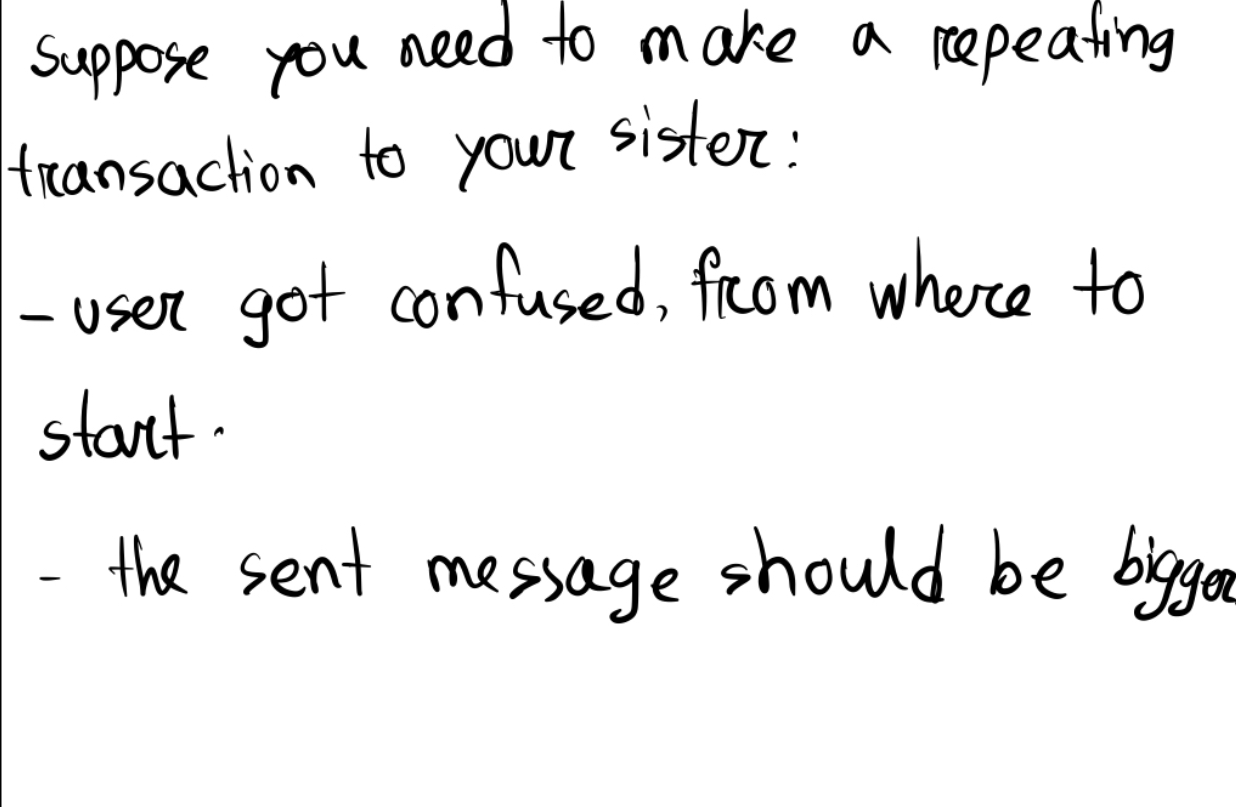 Suppose you need to make a repeating
transaction to your sister:
- user got confused, from where to
start.
- the sent message should be bigger